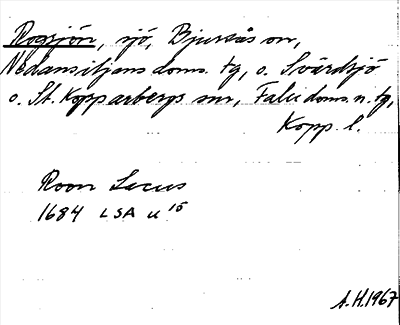 Rogsjön, sjö, Bjursås sn,
Nedansiljans doms. tg, o. Svärdsjö
o. St. Kopparbergs snr, Falu doms. n. tg,
Kopp. l.
Roon Lacus
1684 LSA U 15
A.H. 1967